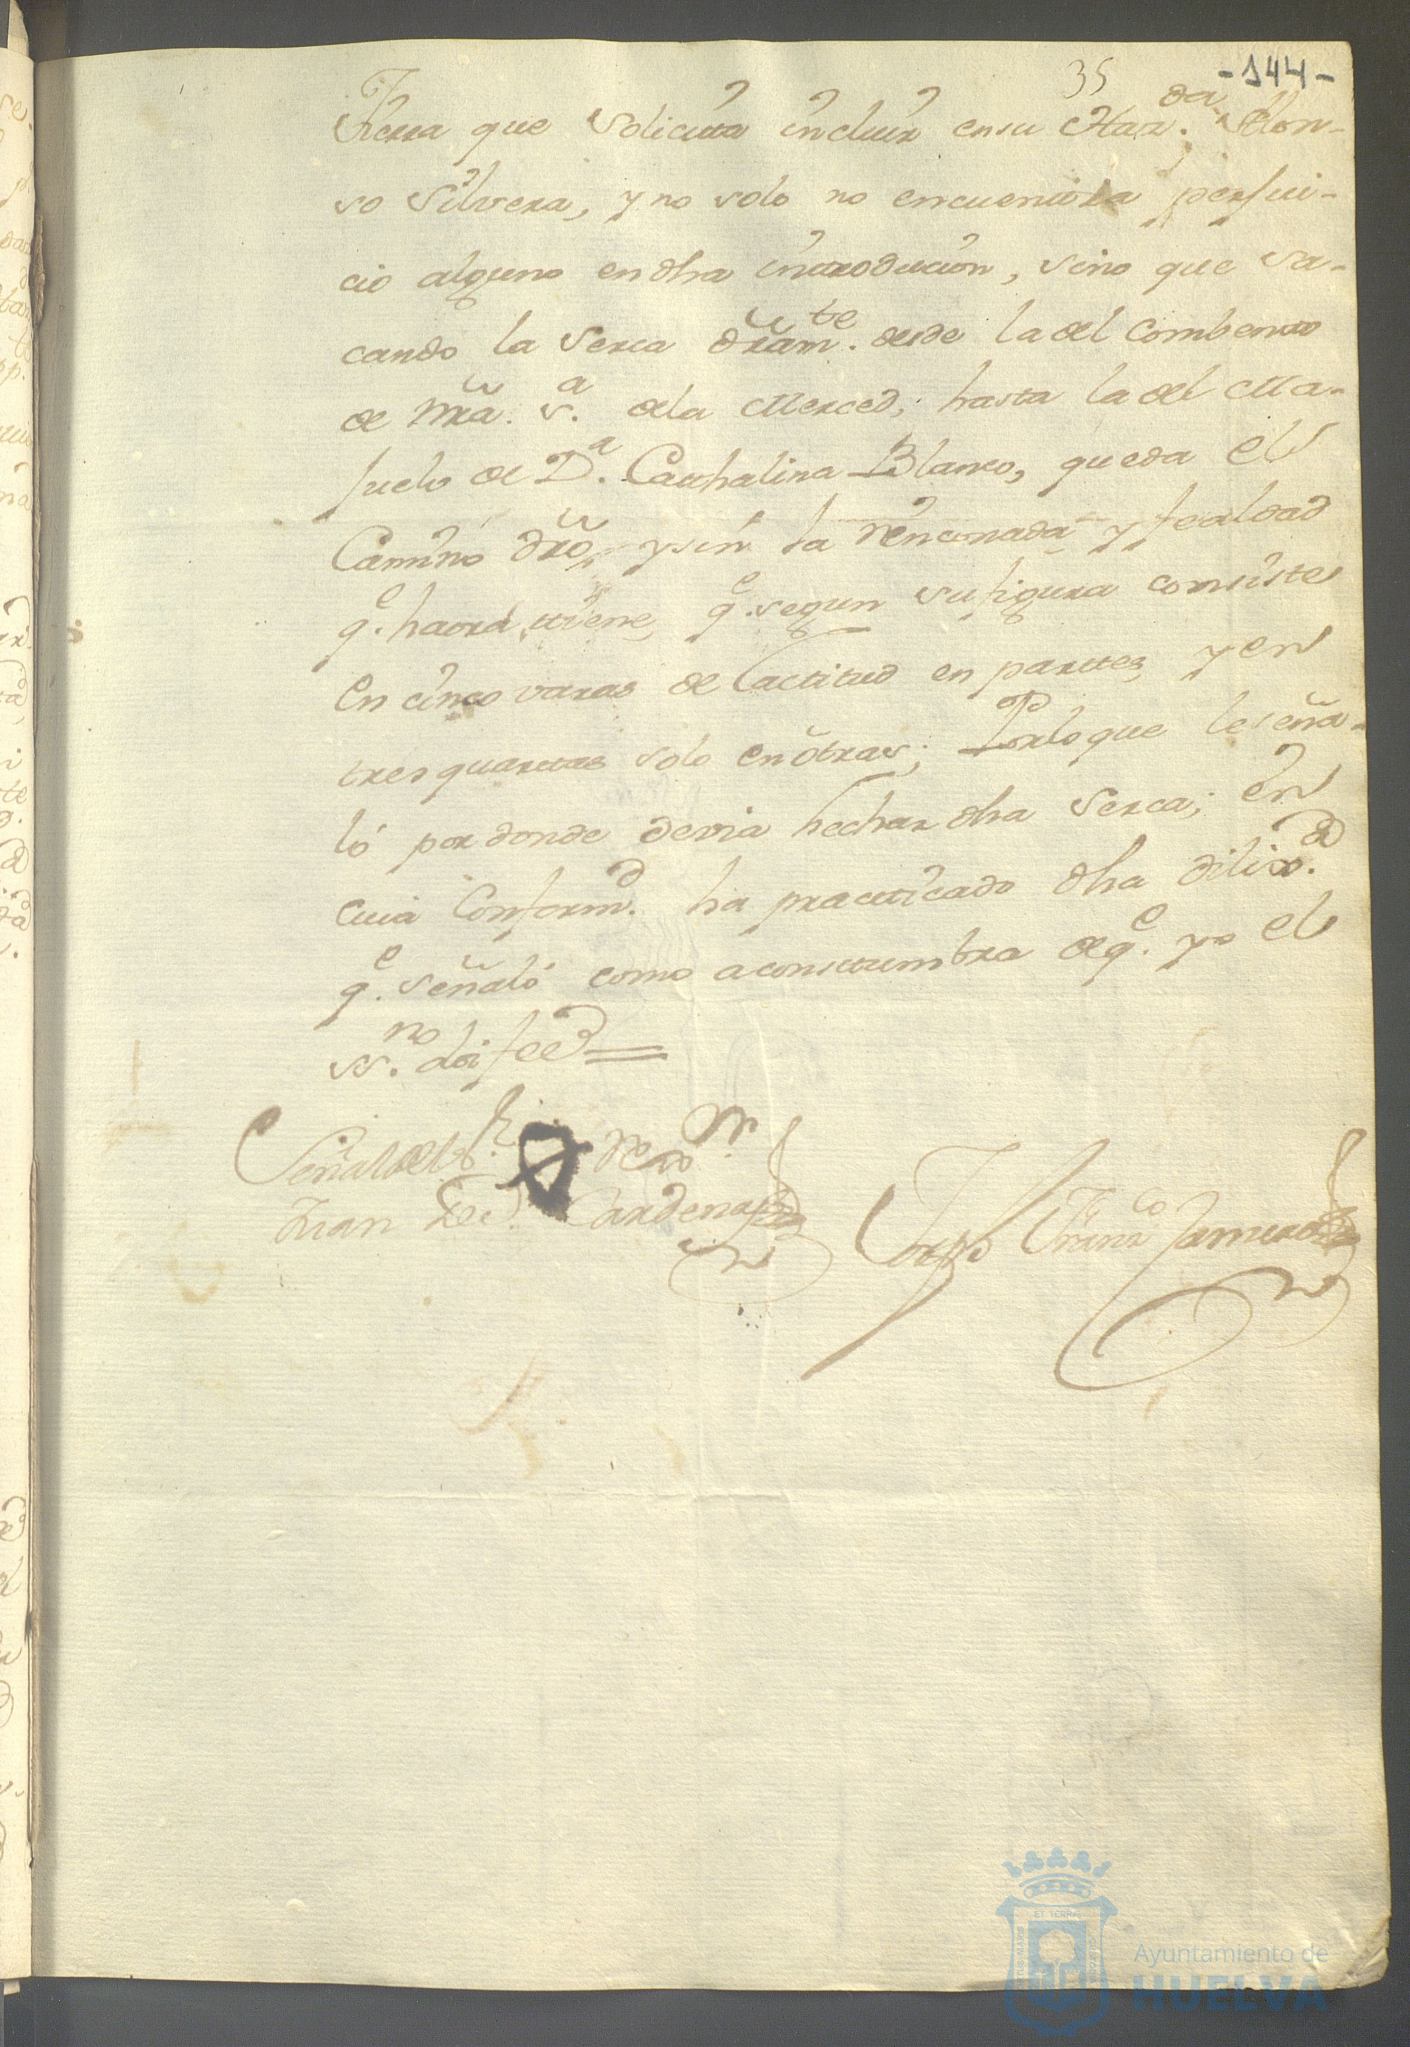 35 -144-
Tierra que solicita incluir en su Haz.da Alon-
so Silvera, y no solo no encuentra perjui-
cio alguno en dha introducion, sino que sa-
cando la Serca dr̃am.te desde la del Combento
de Nr̃a. S.a de la Merced, hasta la del Ma-
juelo de D.a Cathalina Blanco, queda el
Camino dr̃o, y sin la rinconada y fealdad
q.e haora tiene, q.e segun su figura consiste
en cinco varas de Lactitud en partes, y en
tres quartas solo en otras; Por lo que le seña-
ló por donde devia hechar dha Serca; en
cuia Conform.d ha practicado dha dilix.d
q.e señaló como acostumbra de q.e yo el
ss.no doi fee =
Señal de
Juan Cardenas
Jorge Fran.co
Ayuntamiento de
HUELVA